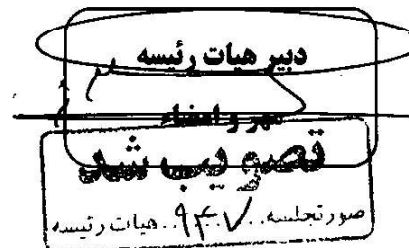 دبیر هیات رئیسه
مهر و امضاء
تصویب شد
صورتجلسه ..۹۴۰۷.. هیات رئیسه